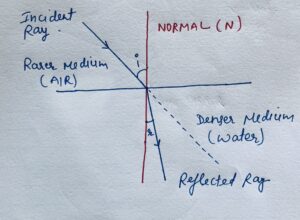 Incident
Ray.
NORMAL (N)
i
Rarer Medium
(AIR)
Denser Medium
(Water)
r
Reflected Ray